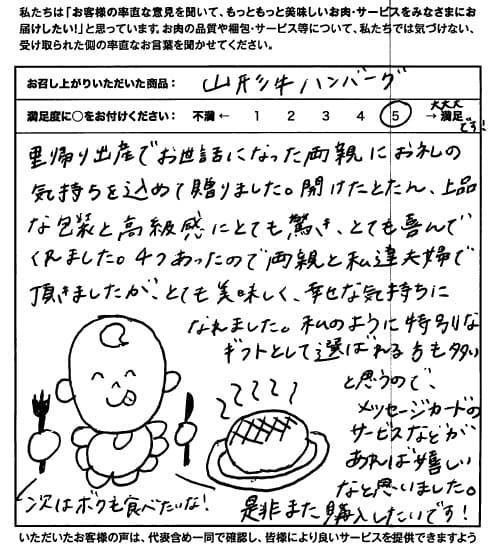 私たちは「お客様の率直な意見を聞いて、もっともっと美味しいお肉・サービスをみなさまにお
届けしたい！」と思っています。お肉の品質や梱包・サービス等について、私たちでは気づけない、
受け取られた側の率直なお言葉を聞かせてください。
お召し上がりいただいた商品： 山形牛ハンバーグ
満足度に○をお付けください： 不満 ← 1 2 3 4 5 → 大大大満足です！
里帰り出産でお世話になった両親にお礼の
気持ちを込めて贈りました。開けたとたん、上品
な包装と高級感にとても驚き、とても喜んで
くれました。4つあったので両親と私達夫婦で
頂きましたが、とても美味しく、幸せな気持ちに
なれました。私のように特別な
ギフトとして選ばれる方も多い
と思うので、
メッセージカードの
サービスなどが
あれば嬉しい
なと思いました。
是非また購入したいです！
次はボクも食べたいな！
いただいたお客様の声は、代表含め一同で確認し、皆様により良いサービスを提供できますよう